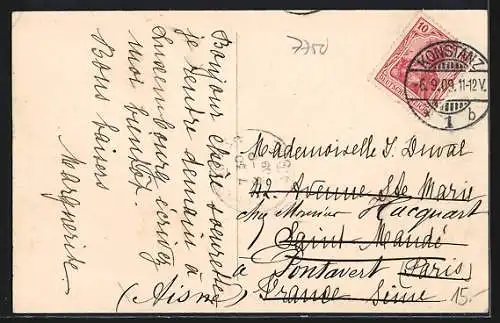 7750
Bonjour chère soeurette
je rentre demain à
Luxembourg écrivez
moi bientôt.
Bons baisers
Marguerite
10
KONSTANZ
-6.9.09. 11-12 V.
* 1 b
Mademoiselle S. Duval
42 Avenue Ste Marie
chez Monsieur Hacquart
Saint Mandé
à Pontavert (Paris)
(Aisne) France Seine
15.-